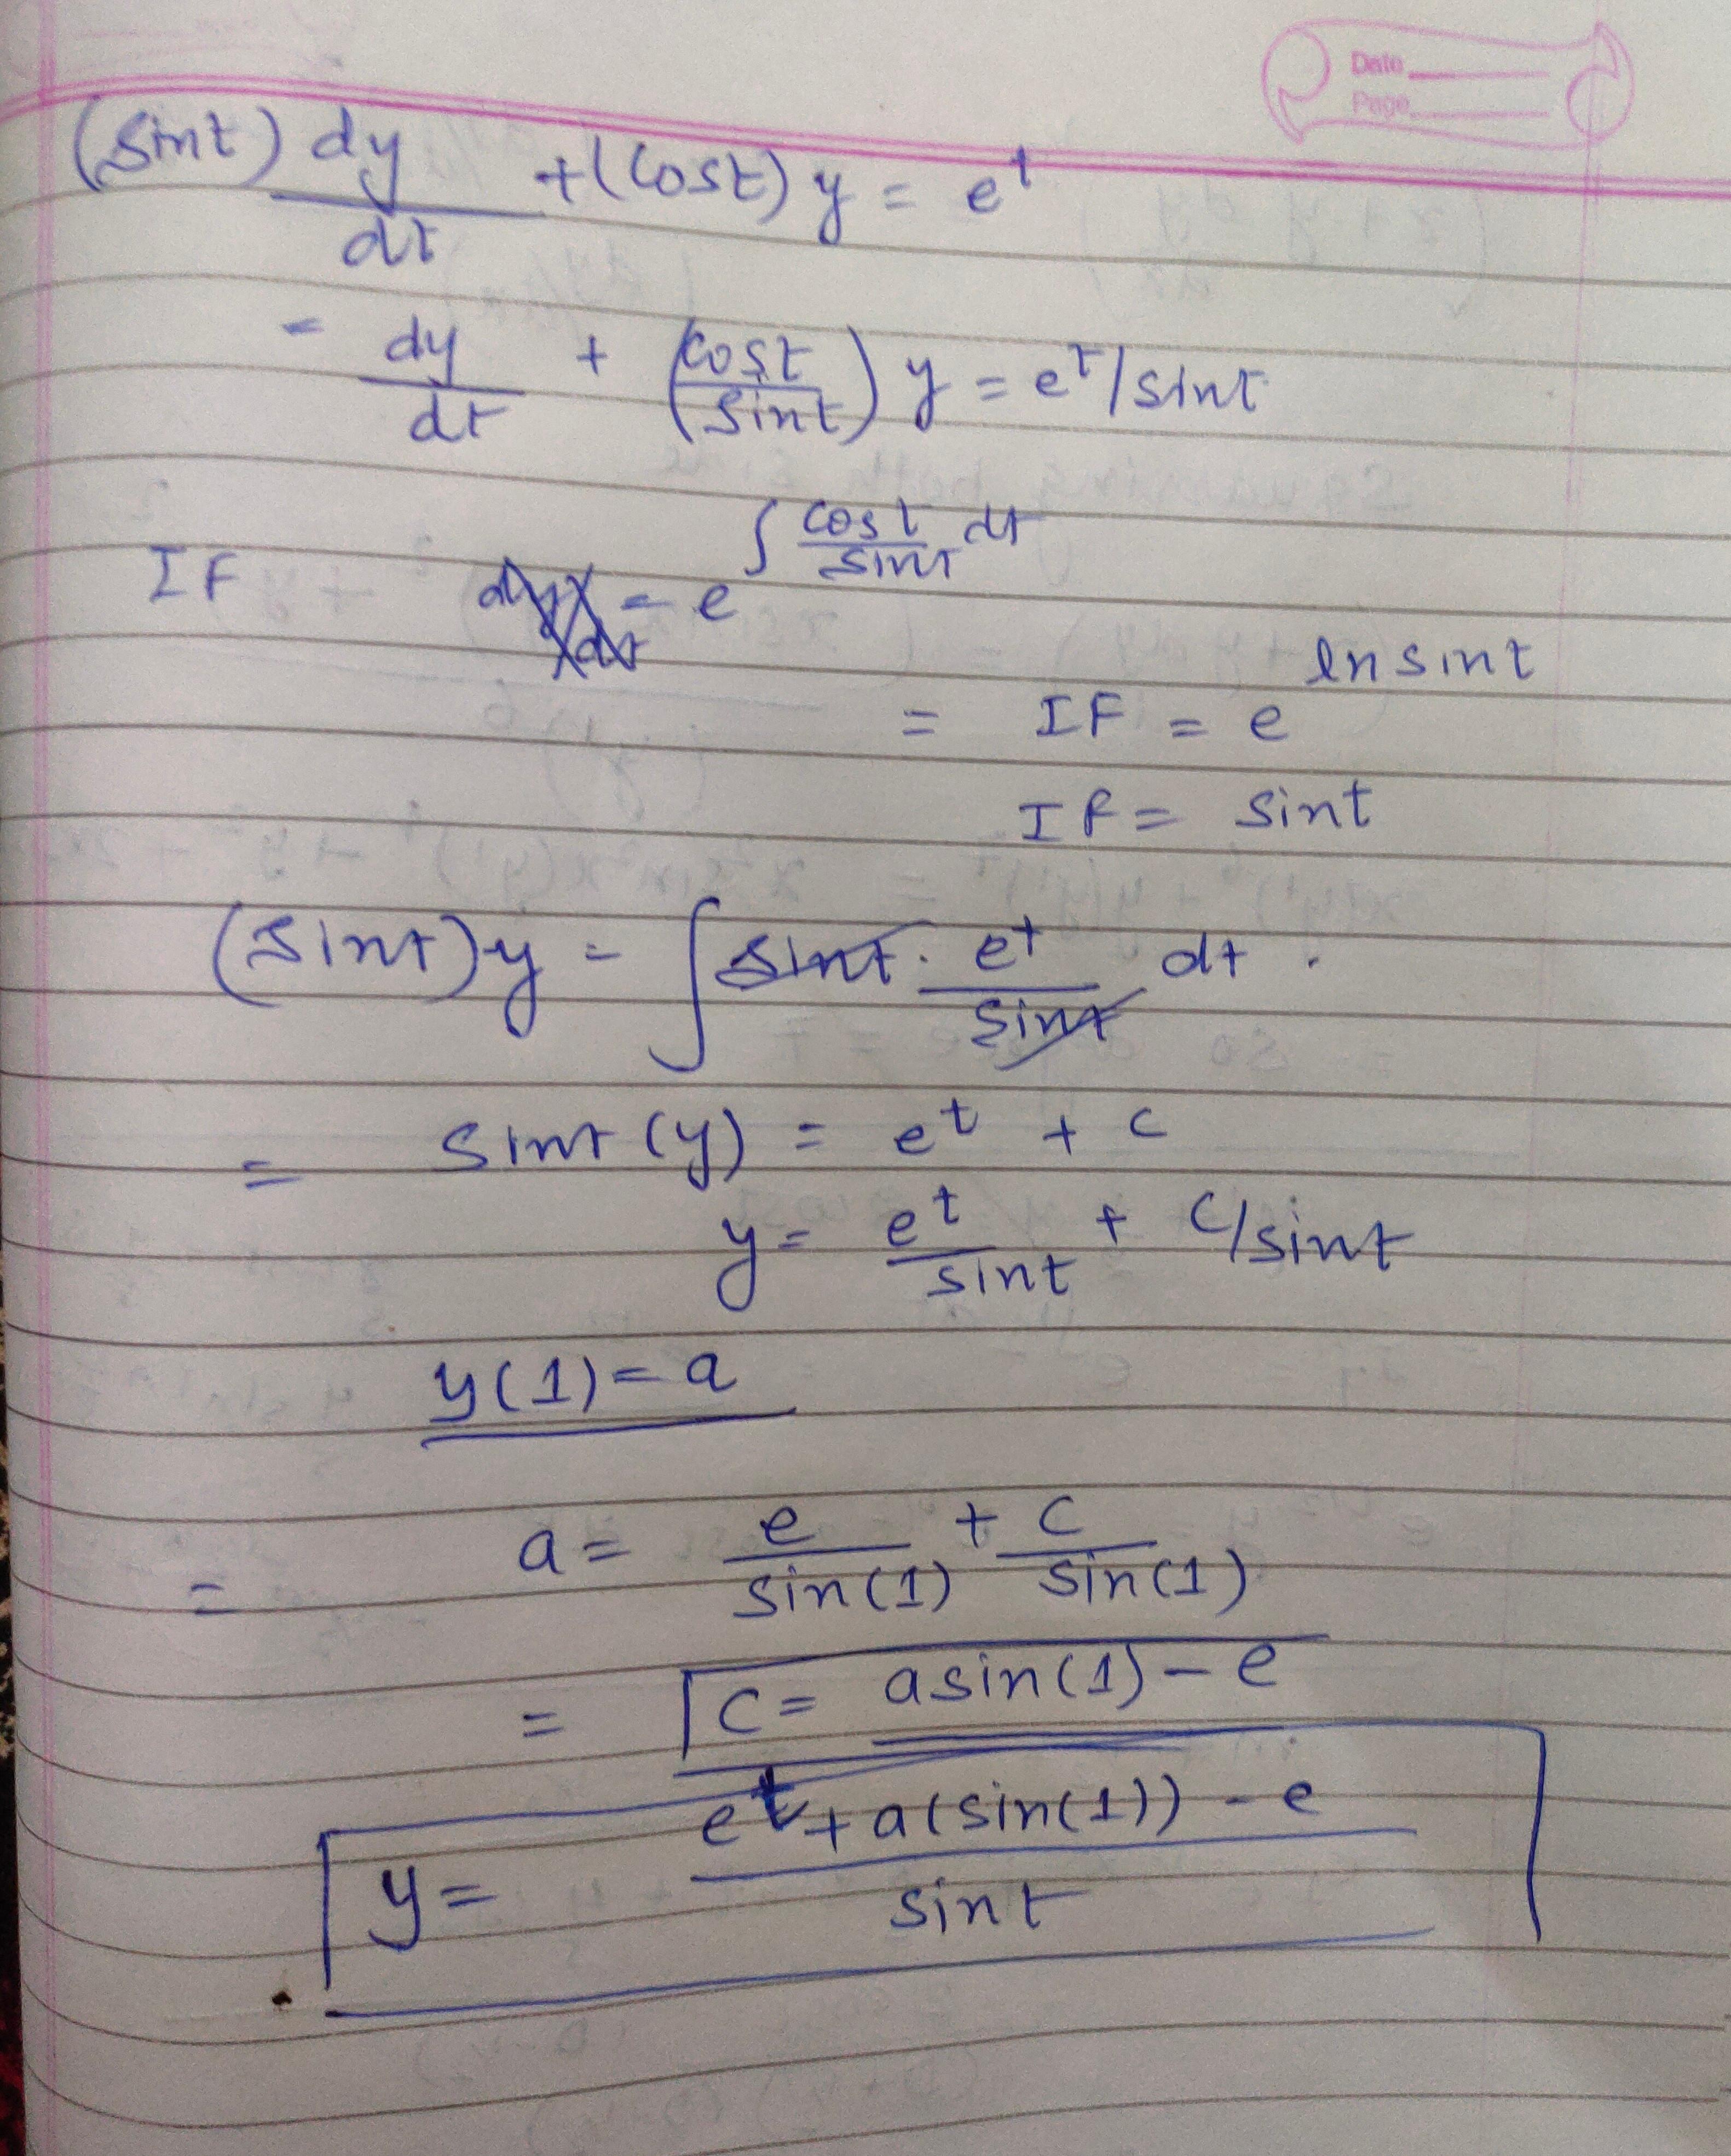 Date
Page
(sint) dy/dt + (cost) y = e^t
= dy/dt + (cost/sint) y = e^t/sint
IF = e^∫ cost/sint dt
= IF = e^ln sint
IF = sint
(sint)y = ∫ sint . e^t/sint dt .
= sint (y) = e^t + c
y = e^t/sint + c/sint
y(1) = a
= a = e/sin(1) + c/sin(1)
= c = asin(1) - e
y = e^t + a(sin(1)) - e / sint